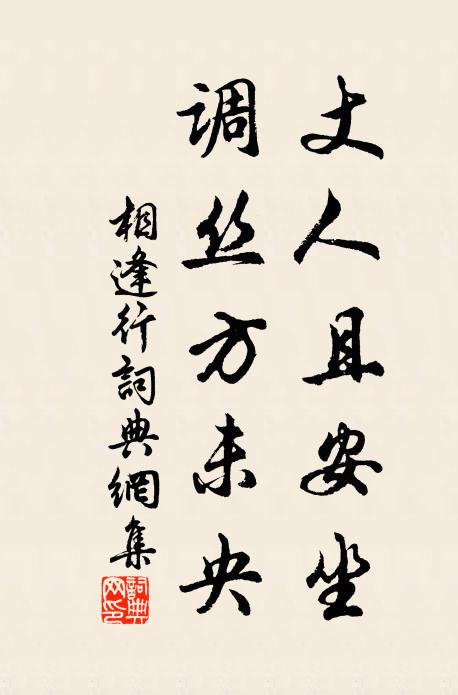 丈人且安坐
调丝方未央
相逢行詞典網集
詞典网印